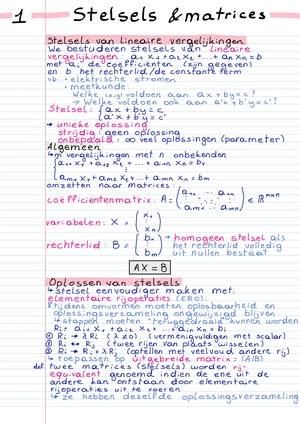 1 Stelsels & matrices
Stelsels van lineaire vergelijkingen
We bestuderen stelsels van lineaire
vergelijkingen: a₁x₁ + a₂x₂ + ... + aₙxₙ = b
met aᵢ de coëfficiënten (zijn gegeven)
en b het rechterlid/de constante term
vb. • elektrische stromen
• meetkunde:
Welke (x,y) voldoen aan ax + by = c?
→ Welke voldoen ook aan a'x + b'y = c'?
Stelsel: { ax + by = c
{ a'x + b'y = c'
→ unieke oplossing
strijdig: geen oplossing
onbepaald: ∞ veel oplossingen (parameter)
Algemeen
↳ m vergelijkingen met n onbekenden
{ a₁₁x₁ + a₁₂x₂ + ... + a₁ₙxₙ = b₁
{ aₘ₁x₁ + aₘ₂x₂ + ... + aₘₙxₙ = bₘ
omzetten naar matrices:
coëfficiëntenmatrix: A = (a₁₁ ... a₁ₙ
aₘ₁ ... aₘₙ) ∈ ℝᵐˣⁿ
variabelen: X = (x₁
xₙ)
rechterlid: B = (b₁
bₘ) → homogeen stelsel als
het rechterlid volledig
uit nullen bestaat
AX = B
Oplossen van stelsels
↳ stelsel eenvoudiger maken met:
elementaire rijoperaties (ERO):
↳ tijdens omvormen moeten oplosbaarheid en
oplossingsverzameling ongewijzigd blijven
↳ stappen moeten teruggedraaid kunnen worden
Rᵢ: aᵢ₁x₁ + aᵢ₂x₂ + ... aᵢₙxₙ = bᵢ
① Rᵢ → λRᵢ (λ≠0) (vermenigvuldigen met scalar)
② Rᵢ ↔ Rⱼ (twee rijen van plaats wisselen)
③ Rᵢ → Rᵢ + λRⱼ (optellen met veelvoud andere rij)
↳ toepassen op uitgebreide matrix = (A|B)
def. twee matrices (stelsels) worden rij-
equivalent genoemd indien de ene uit de
andere kan ontstaan door elementaire
rijoperaties uit te voeren
↳ ze hebben dezelfde oplossingsverzameling